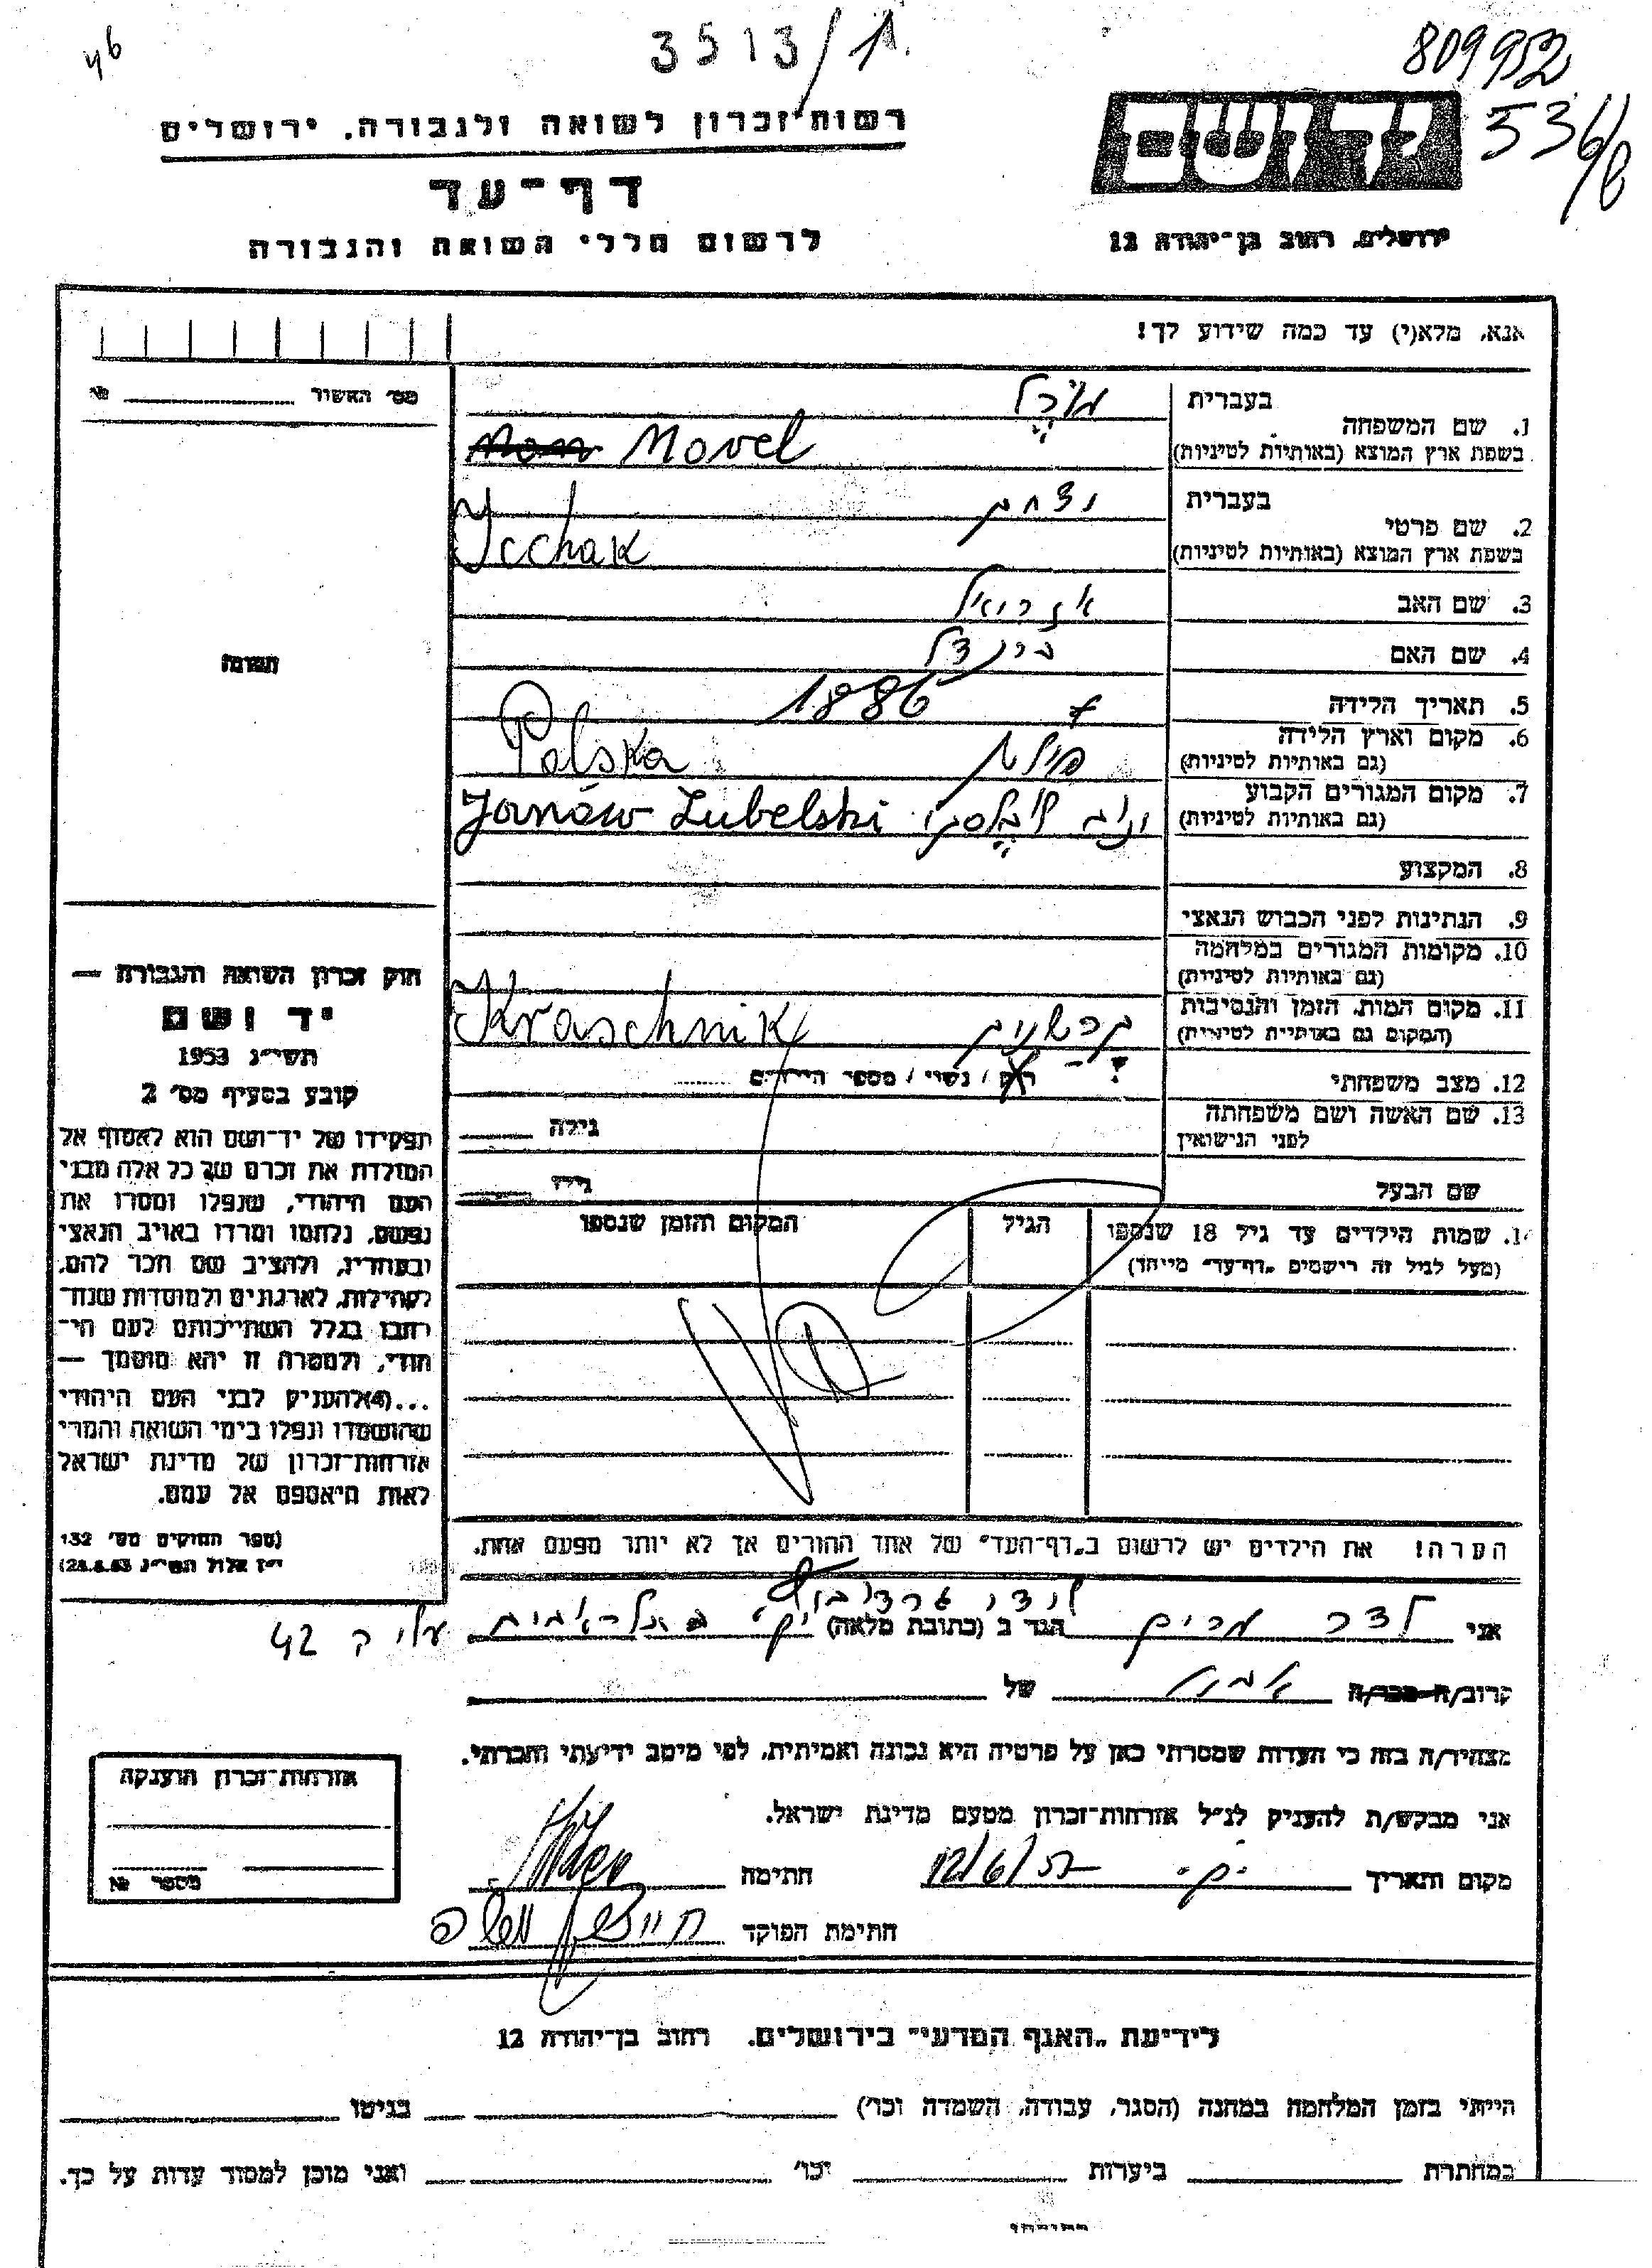 46
3513/1
809952
536/8
רשות־זכרון לשואה ולגבורה, ירושלים
יד ושם
דף־עד
לרשום חללי השואה והגבורה
ירושלים, רחוב בן־יהודה 12
אנא, מלא(י) עד כמה שידוע לך!
מס׳ האשור № 
1. שם המשפחה
בעברית
בשפת ארץ המוצא (באותיות לטיניות)
Movel
2. שם פרטי
בעברית יצחק
בשפת ארץ המוצא (באותיות לטיניות)
Icchak
3. שם האב עזריאל
4. שם האם
5. תאריך הלידה 1886
6. מקום וארץ הלידה פולין Polska
(גם באותיות לטיניות)
7. מקום המגורים הקבוע ינוב לובלסקי Janów Lubelski
(גם באותיות לטיניות)
8. המקצוע
9. הנתינות לפני הכבוש הנאצי
10. מקומות המגורים במלחמה
(גם באותיות לטיניות)
11. מקום המות, הזמן והנסיבות קרשניק Kraschnik
(המקום גם באותיות לטיניות)
12. מצב משפחתי רווק / נשוי / מספר הילדים
13. שם האשה ושם משפחתה גילה
לפני הנישואין
שם הבעל גילו
14. שמות הילדים עד גיל 18 שנספו הגיל המקום והזמן שנספו
(מעל לגיל זה רישמים „דף־עד״ מייחד)
הערה! את הילדים יש לרשום ב„דף־העד״ של אחד ההורים אך לא יותר מפעם אחת.
תמונה
חוק זכרון השואה והגבורה —
יד ושם
תשי״ג 1953
קובע בסעיף מס׳ 2
תפקידו של יד־ושם הוא לאסוף אל
המולדת את זכרם של כל אלה מבני
העם היהודי, שנפלו ומסרו את
נפשם, נלחמו ומרדו באויב הנאצי
ובעוזריו, ולהציב שם וזכר להם,
לקהילות, לארגונים ולמוסדות שנח־
רהבו בגלל השתייכותם לעם הי־
הודי, ולמטרה זו יהא מוסמך —
...(4) להעניק לבני העם היהודי
שהושמדו ונפלו בימי השואה והמרי
אזרחות־זכרון של מדינת ישראל
לאות היאספם אל עמם.
(ספר החוקים מס׳ 132
י״ז אלול תשי״ג 28.8.53)
אני לדר מרים הגר ב (כתובת מלאה) 42
קרוב/ה מכר/ה של
מצהיר/ה בזה כי העדות שמסרתי כאן על פרטיה היא נכונה ואמיתית, לפי מיטב ידיעתי והכרתי.
אני מבקש/ת להעניק לנ״ל אזרחות־זכרון מטעם מדינת ישראל.
מקום ותאריך חתימה
חתימת הפוקד
אזרחות־זכרון הוענקה
מספר №
לידיעת „האגף המדעי״ בירושלים, רחוב בן־יהודה 12
הייתי בזמן המלחמה במחנה (הסגר, עבודה, השמדה וכו׳) בגיטו
במחתרת ביערות וכו׳ ואני מוכן למסור עדות על כך.